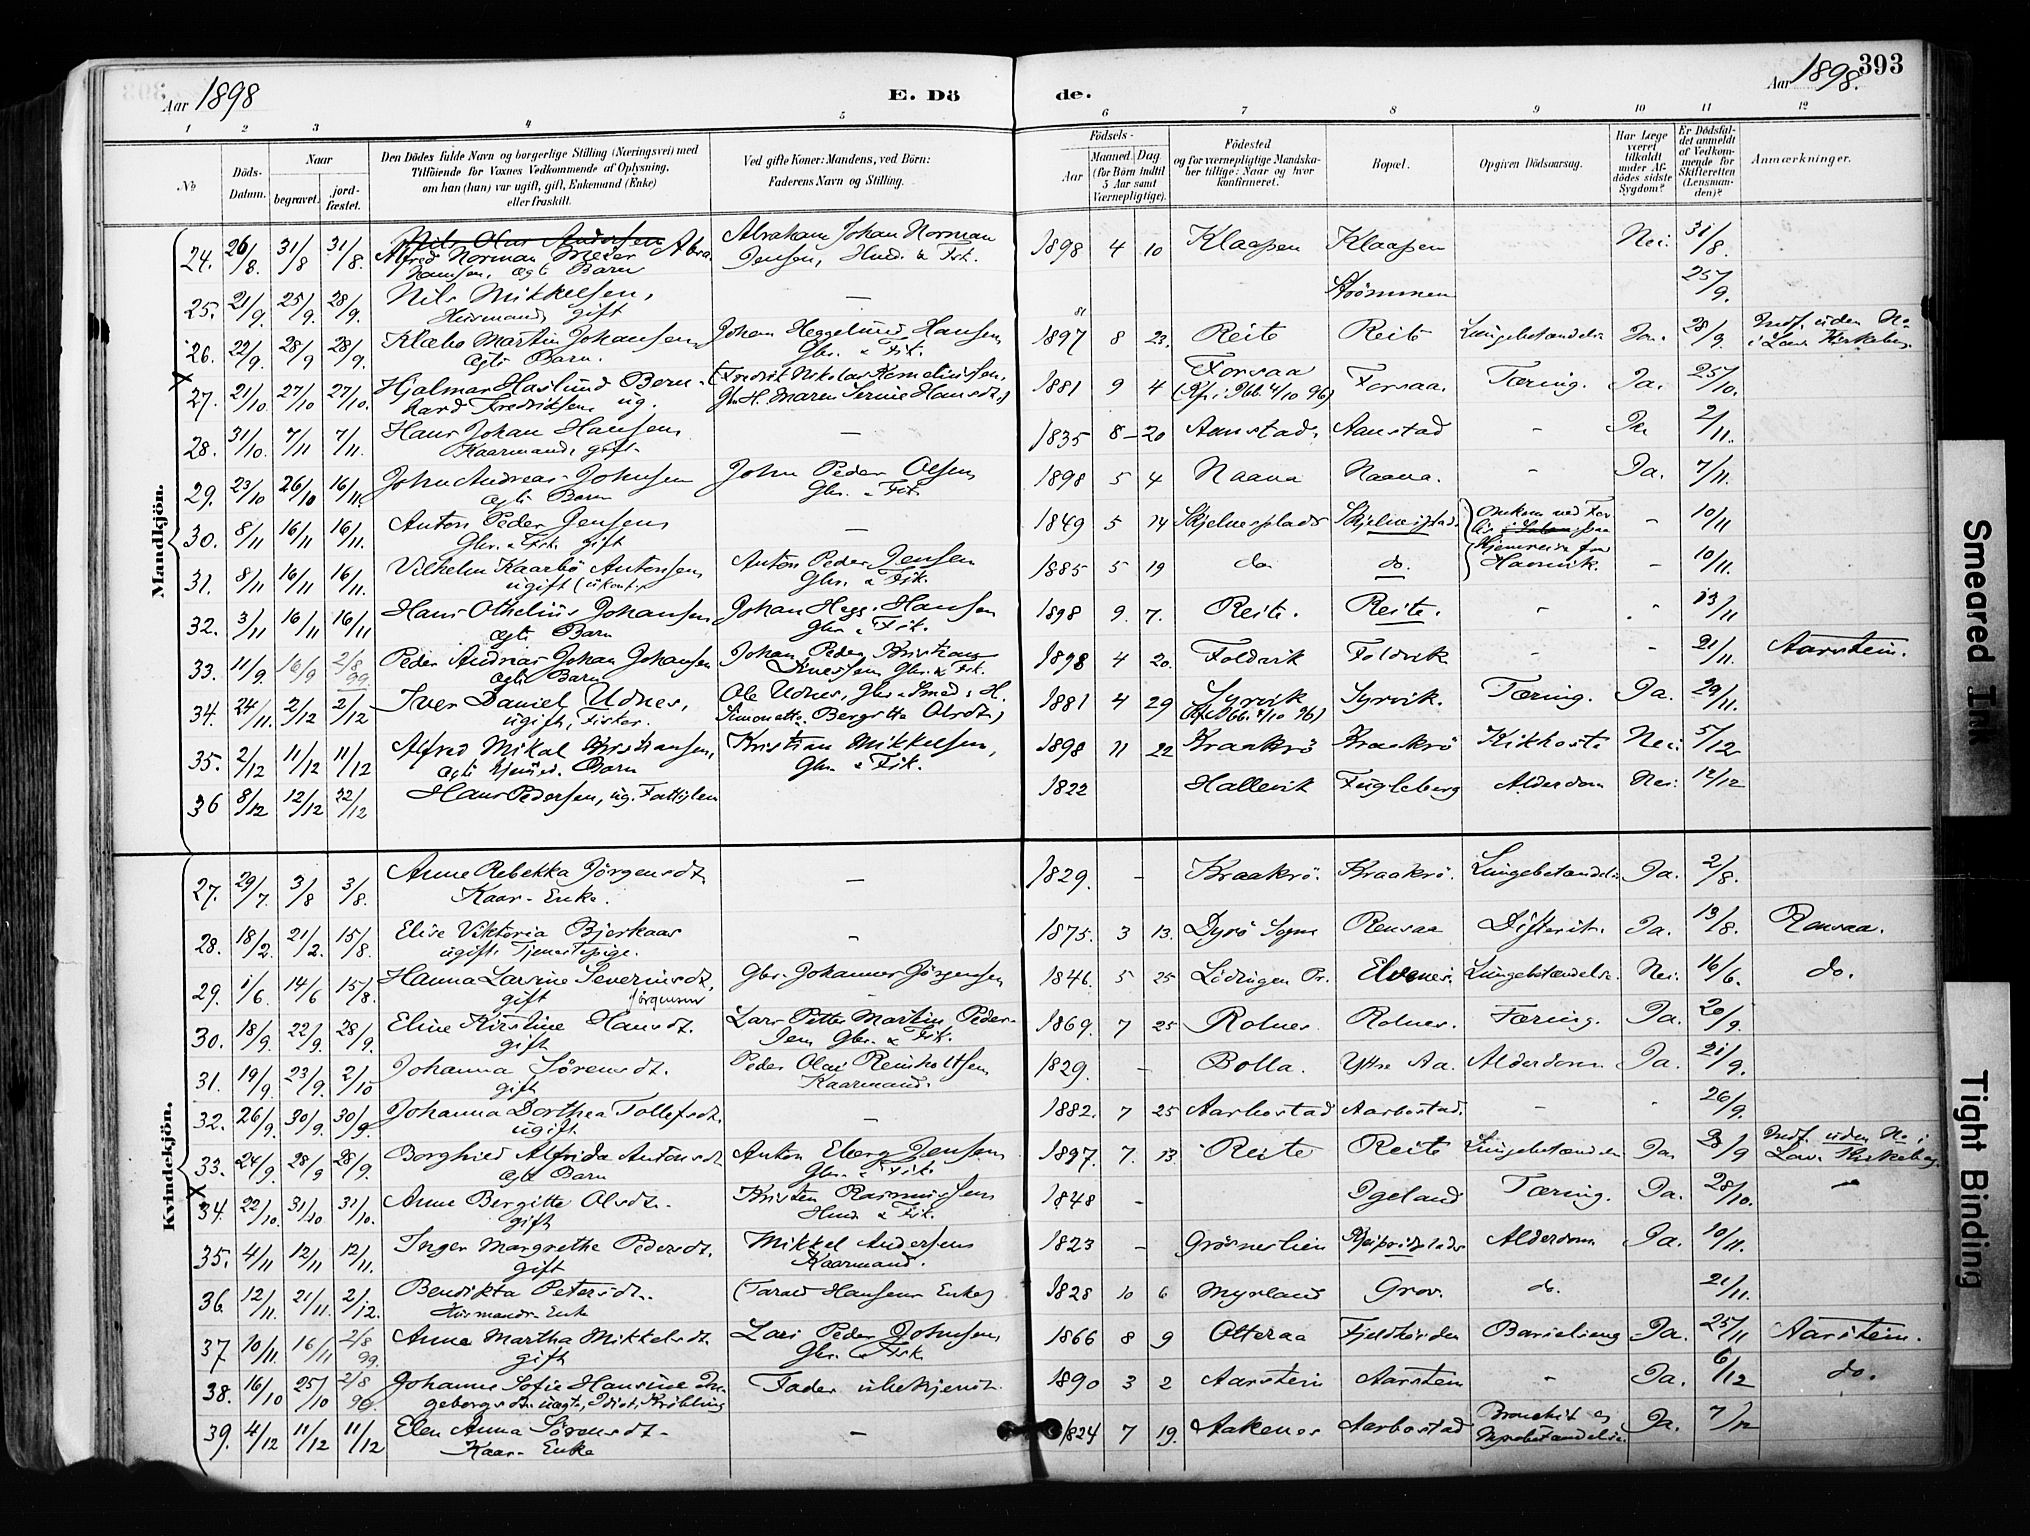 Aar 1898
E. Dö
de.
Aar 1898.
393
1 2 3 4 5 6 7 8 9 10 11 12
No
Döds-Datum.
Naar
begravet.
jord-fæstet.
Den Dödes fulde Navn og borgerlige Stilling (Næringsvei) med
Tilföiende for Voxnes Vedkommende af Oplysning,
om han (hun) var ugift, gift, Enkemand (Enke)
eller fraskilt.
Ved gifte Koner: Mandens, ved Börn:
Faderens Navn og Stilling.
Födsels-
Aar
Maaned Dag
(for Börn indtil
5 Aar samt
Værnepligtige).
Födested
og for værnepligtige Mandska-
ber tillige: Naar og hvor
konfirmeret.
Bopæl.
Opgiven Dödsaarsag.
Har Læge
været
tilkaldt
under Af-
dödes sidste
Sygdom?
Er Dödsfal-
det anmeldt
af Vedkom-
mende for
Skifteretten
(Lensman-
den)?
Anmærkninger.
Mandkjön.
24. 26/8. 31/8 31/8. Nils Olai Andersen Abraham Johan Norman 1898 4 10 Klaapen Klaapen Nei. 31/8.
Alfred Norman Meier Abra Jensen, Husm. & Fisk.
hamsen, ægte Barn
25. 21/9. 25/9. 28/9. Nils Mikkelsen, — Strömmen 25/9.
Husmand, gift
26. 22/9. 28/9 28/9. Klæbo Martin Johansen Johan Heggelund Hansen 1897 8 23. Reite Reite Lungebetændelse Ja. 28/9. Indf. uden No
ægte Barn. Gbr. & Fisk. i Lavangens Kirkebog.
27. 21/10. 27/10 27/10. Hjalmar Haslund Bern- (Fredrik Nikolai Kornelinssen, 1881 9 4 Forsaa Forsaa. Tæring. Ja. 25/10.
hard Fredriksen ug. Gbr. H. Maren Serine Hansdt.) (Kfr. i Ibb. 4/10 96)
28. 31/10. 7/11 7/11. Hans Johan Hansen — 1835 8 20 Aanstad. Aanstad - Ja 2/11.
Kaarmand, gift.
29. 23/10 26/10 16/11. John Andreas Johnsen John Peder Olsen 1898 5 4 Naava Naava. - Ja. 7/11.
ægte Barn Gbr. & Fisk.
30. 8/11 16/11 16/11. Anton Peder Jensen — 1849 5 14 Skjelnesplads Skjelnesplads Omkom ved For - 10/11
Gbr. & Fisk. gift lis
31. 8/11 16/11 16/11. Vilhelm Kaarbö Antonsen Anton Peder Jensen 1885 5 19 do do. Hjemreise fra Havnvik. - 10/11.
ugift (ukonf.) Gbr. & Fisk.
32. 3/11 16/11 16/11 Hans Othelius Johansen Johan Hegg. Hansen 1898 9. 7. Reite. Reite. - - 13/11
ægte Barn Gbr. & Fisk.
33. 11/9. 16/9 2/8 99. Peder Andreas Johan Johansen Johan Peder Kristian 1898 4 20. Foldvik Foldvik - - 21/11. Aarstein.
ægte Barn Gbr. & Fisk.
34. 24/11. 2/12 2/12 Iver Daniel Udnes, Ole Udnes, Gbr. & Smed & H. 1881 4 29 Syrvik Syrvik. Tæring. Ja. 29/11.
ugift, Fisker. Simonette Bergitte Olsdt.)
35. 2/12 11/12 11/12 Alfred Mikal Kristiansen, Kristian Mikkelsen, 1898 11 22 Kraakrö Kraakrö Kikhoste Nei. 5/12
ægte hjemmed. Barn Gbr. & Fisk.
36 8/12 12/12 22/12 Hans Pedersen, ug. Fattiglem 1822 Hallevik Fugleberg Alderdom Nei. 12/12
Kvindekjön.
27. 29/7. 3/8 3/8. Anne Rebekka Jörgensdt. — 1829. - Kraakrö. Kraakrö. Lungebetændelse Ja. 2/8.
Kaar-Enke.
28. 18/2. 21/2. 15/8. Elise Viktoria Bjerkaas - 1875. 3 13. Dyrö Sogn Rensaa Difterit. Ja. 13/8. Rensaa.
ugift Tjenestepige.
29. 1/6. 14/6 15/8. Hanna Larsine Severinsdt. Gbr. Johannes Jörgensen 1846. 5 25 Lödingen Pr. Elvenes. Lungebetændelse Nei. 16/6. do.
gift Jörgensen
30. 18/9. 22/9. 28/9. Eline Kirstine Hansdt. Lars Petter Martin Peder- 1869. 7 25 Rolnes. Rolnes. Tæring. Ja. 20/9.
gift sen Gbr. & Fisk.
31. 19/9. 23/9. 2/10 Johanna Sörensdt. Peder Olai Reinholtsen 1829. - Bolla. Ytre Aa. Alderdom Ja. 21/9.
gift Kaarmand.
32. 26/9. 30/9. 30/9. Johanna Dorthea Tollefsdt. — 1882. 7 25 Aarbostad Aarbostad. - - 26/9.
ugift
33. 24/9. 28/9 28/9. Borghild Alfrida Antonsdt Anton Eberg Jensen 1897. 7. 13. Reite Reite Lungebetændelse Ja 28/9 Indf. uden No i
ægte Barn Gbr. & Fisk. Lav. Kirkebog.
34. 22/10. 31/10 31/10. Anne Bergitte Olsdt. Kristen Rasmussen 1848 - Igeland Tæring. Ja. 28/10. —
gift Husm. & Fisk.
35. 4/11 12/11 12/11. Inger Margrethe Pedersdt. Mikkel Andersen 1823 - Grösneslien Alderdom Ja. 10/11.
gift Kaarmand.
36. 12/11. 21/11. 2/12. Bendikta Petersdt. (Tarald Hansens Enke) 1828 10 6 Myrland Grov. do. 21/11.
Husmands Enke
37 10/11. 16/11 2/8 99. Anne Martha Mikkelsdt. Lars Peder Johnsen 1866 8 9 Olteraa Barselseng Ja. 25/11 Aarstein.
gift Gbr. & Fisk.
38. 16/10 25/10 2/8 99. Johanne Sofie Hansine In- Fader ubekjendt. 1890 3 2 Aarstein Aarstein - Ja. 6/12 do.
geborgsdt. uægte, Idiot, Kröbling
39. 4/12 11/12 11/12 Elen Anna Sörensdt. — 1824 7 19. Aakenes Aarbostad Bronchit og Ja. 7/12
Kaar-Enke
Smeared Ink
Tight Binding